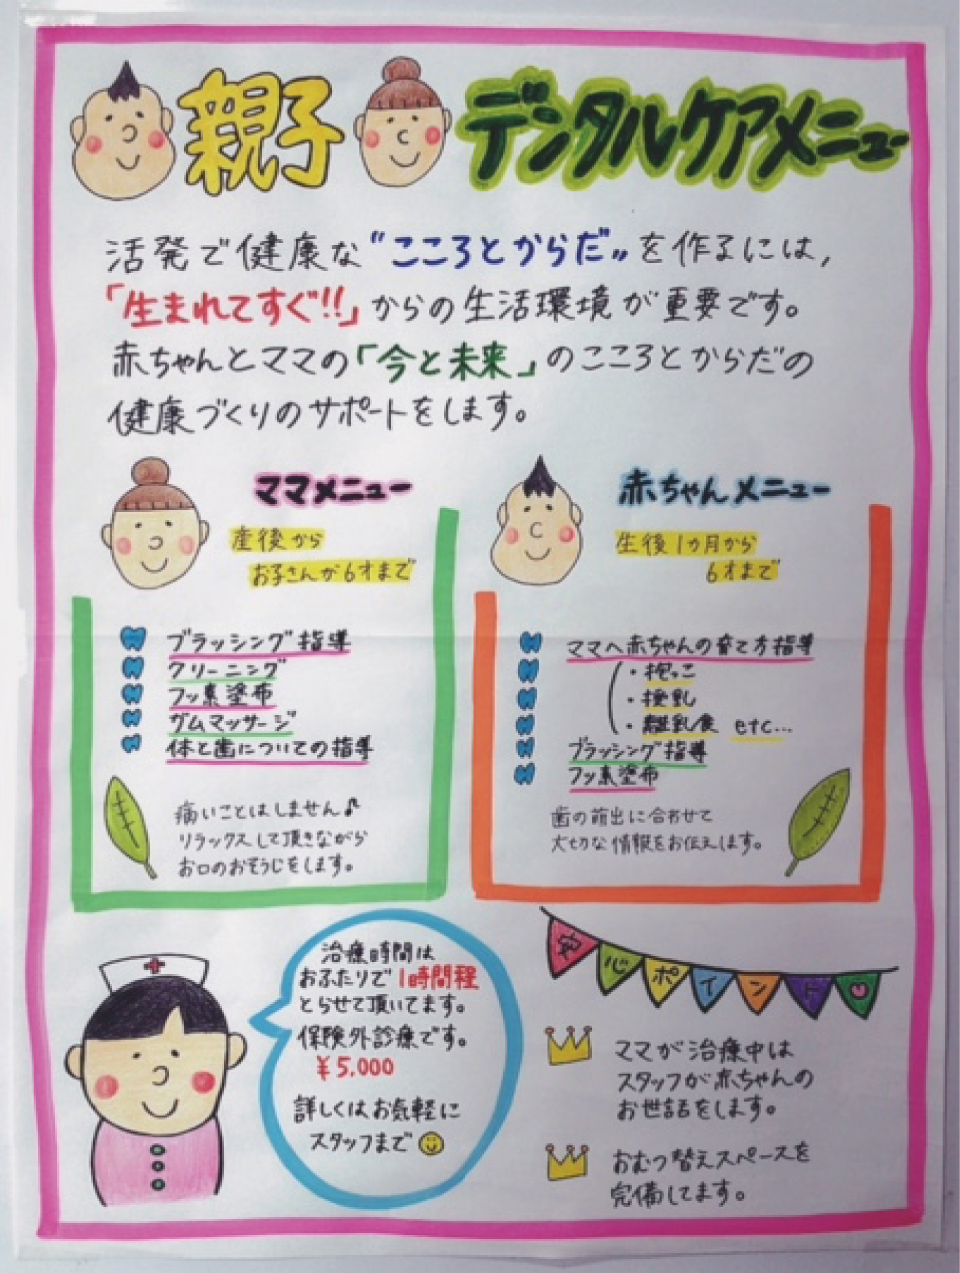 親子 デンタルケアメニュー
活発で健康な〝こころとからだ〟を作るには,
「生まれてすぐ!!」からの生活環境が重要です。
赤ちゃんとママの「今と未来」のこころとからだの
健康づくりのサポートをします。
ママメニュー
産後から
お子さんが6才まで
ブラッシング指導
クリーニング
フッ素塗布
ガムマッサージ
体と歯についての指導
痛いことはしません♪
リラックスして頂きながら
お口のおそうじをします。
赤ちゃんメニュー
生後1カ月から
6才まで
ママへ赤ちゃんの育て方指導
・抱っこ
・授乳
・離乳食 etc...
ブラッシング指導
フッ素塗布
歯の萌出に合わせて
大切な情報をお伝えします。
治療時間は
おふたりで1時間程
とらせて頂いてます。
保険外診療です。
¥5,000
詳しくはお気軽に
スタッフまで
安心ポイント
ママが治療中は
スタッフが赤ちゃんの
お世話をします。
おむつ替えスペースを
完備してます。